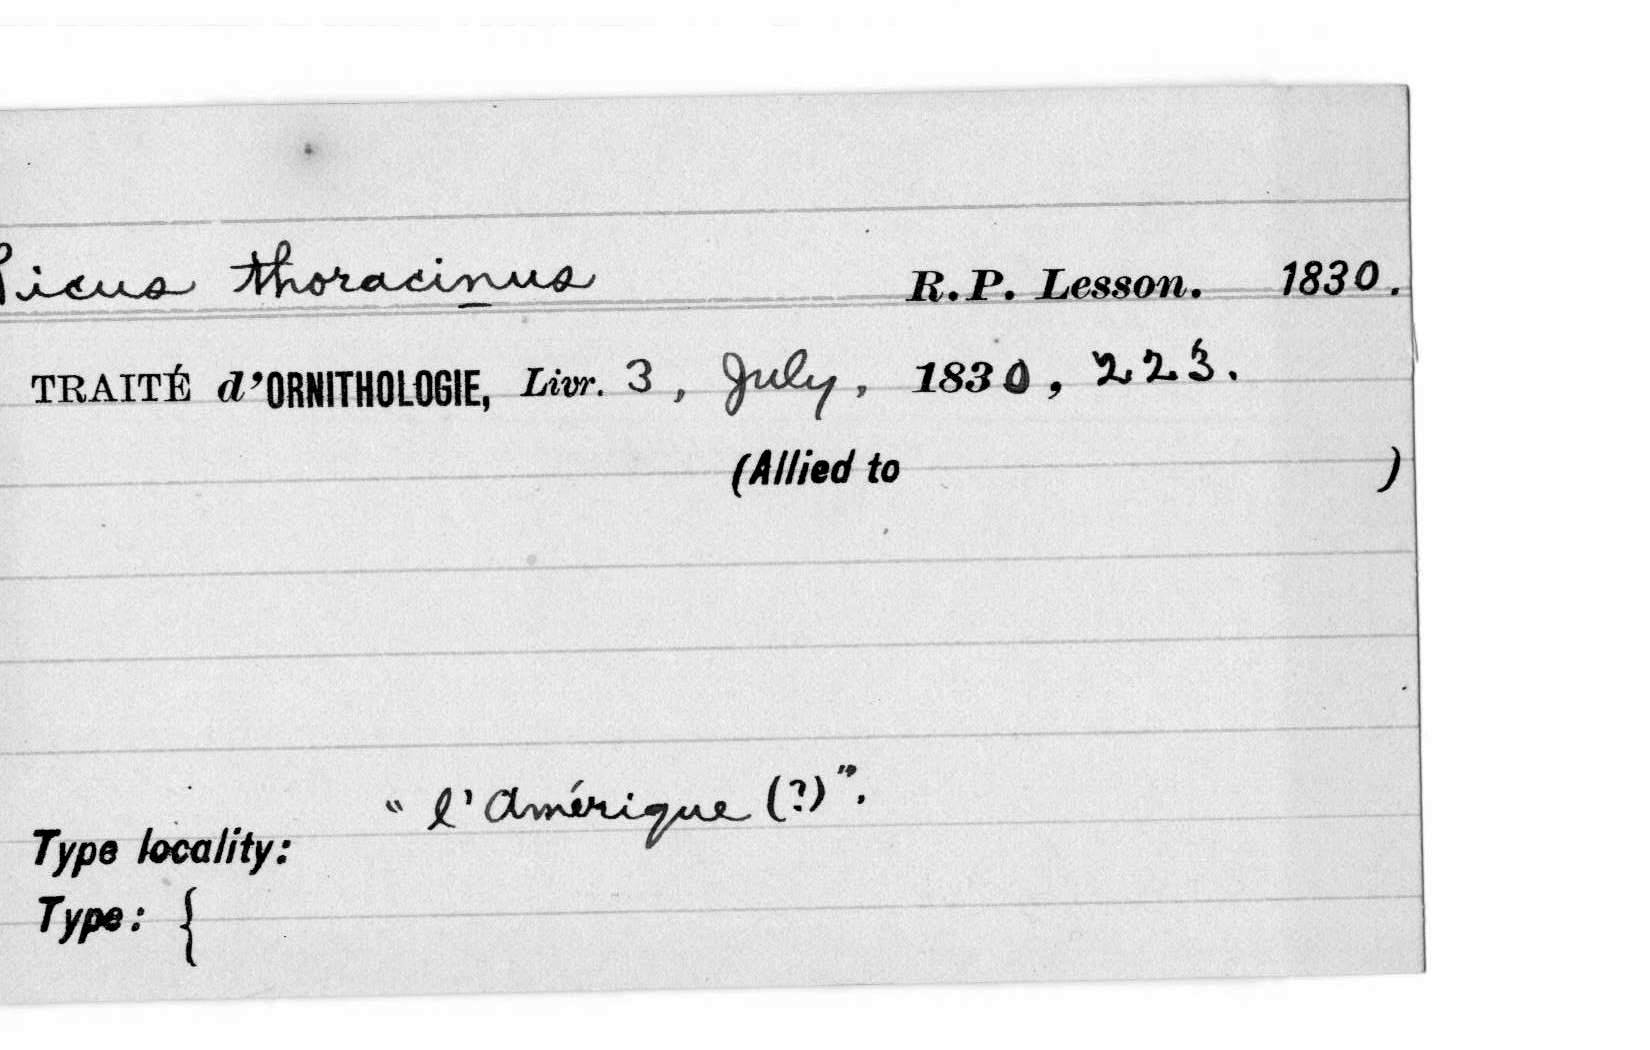 Picus thoracinus R.P. Lesson. 1830.
TRAITÉ d'ORNITHOLOGIE, Livr. 3, July, 1830, 223.
(Allied to )
"l'Amérique (?)".
Type locality:
Type: {